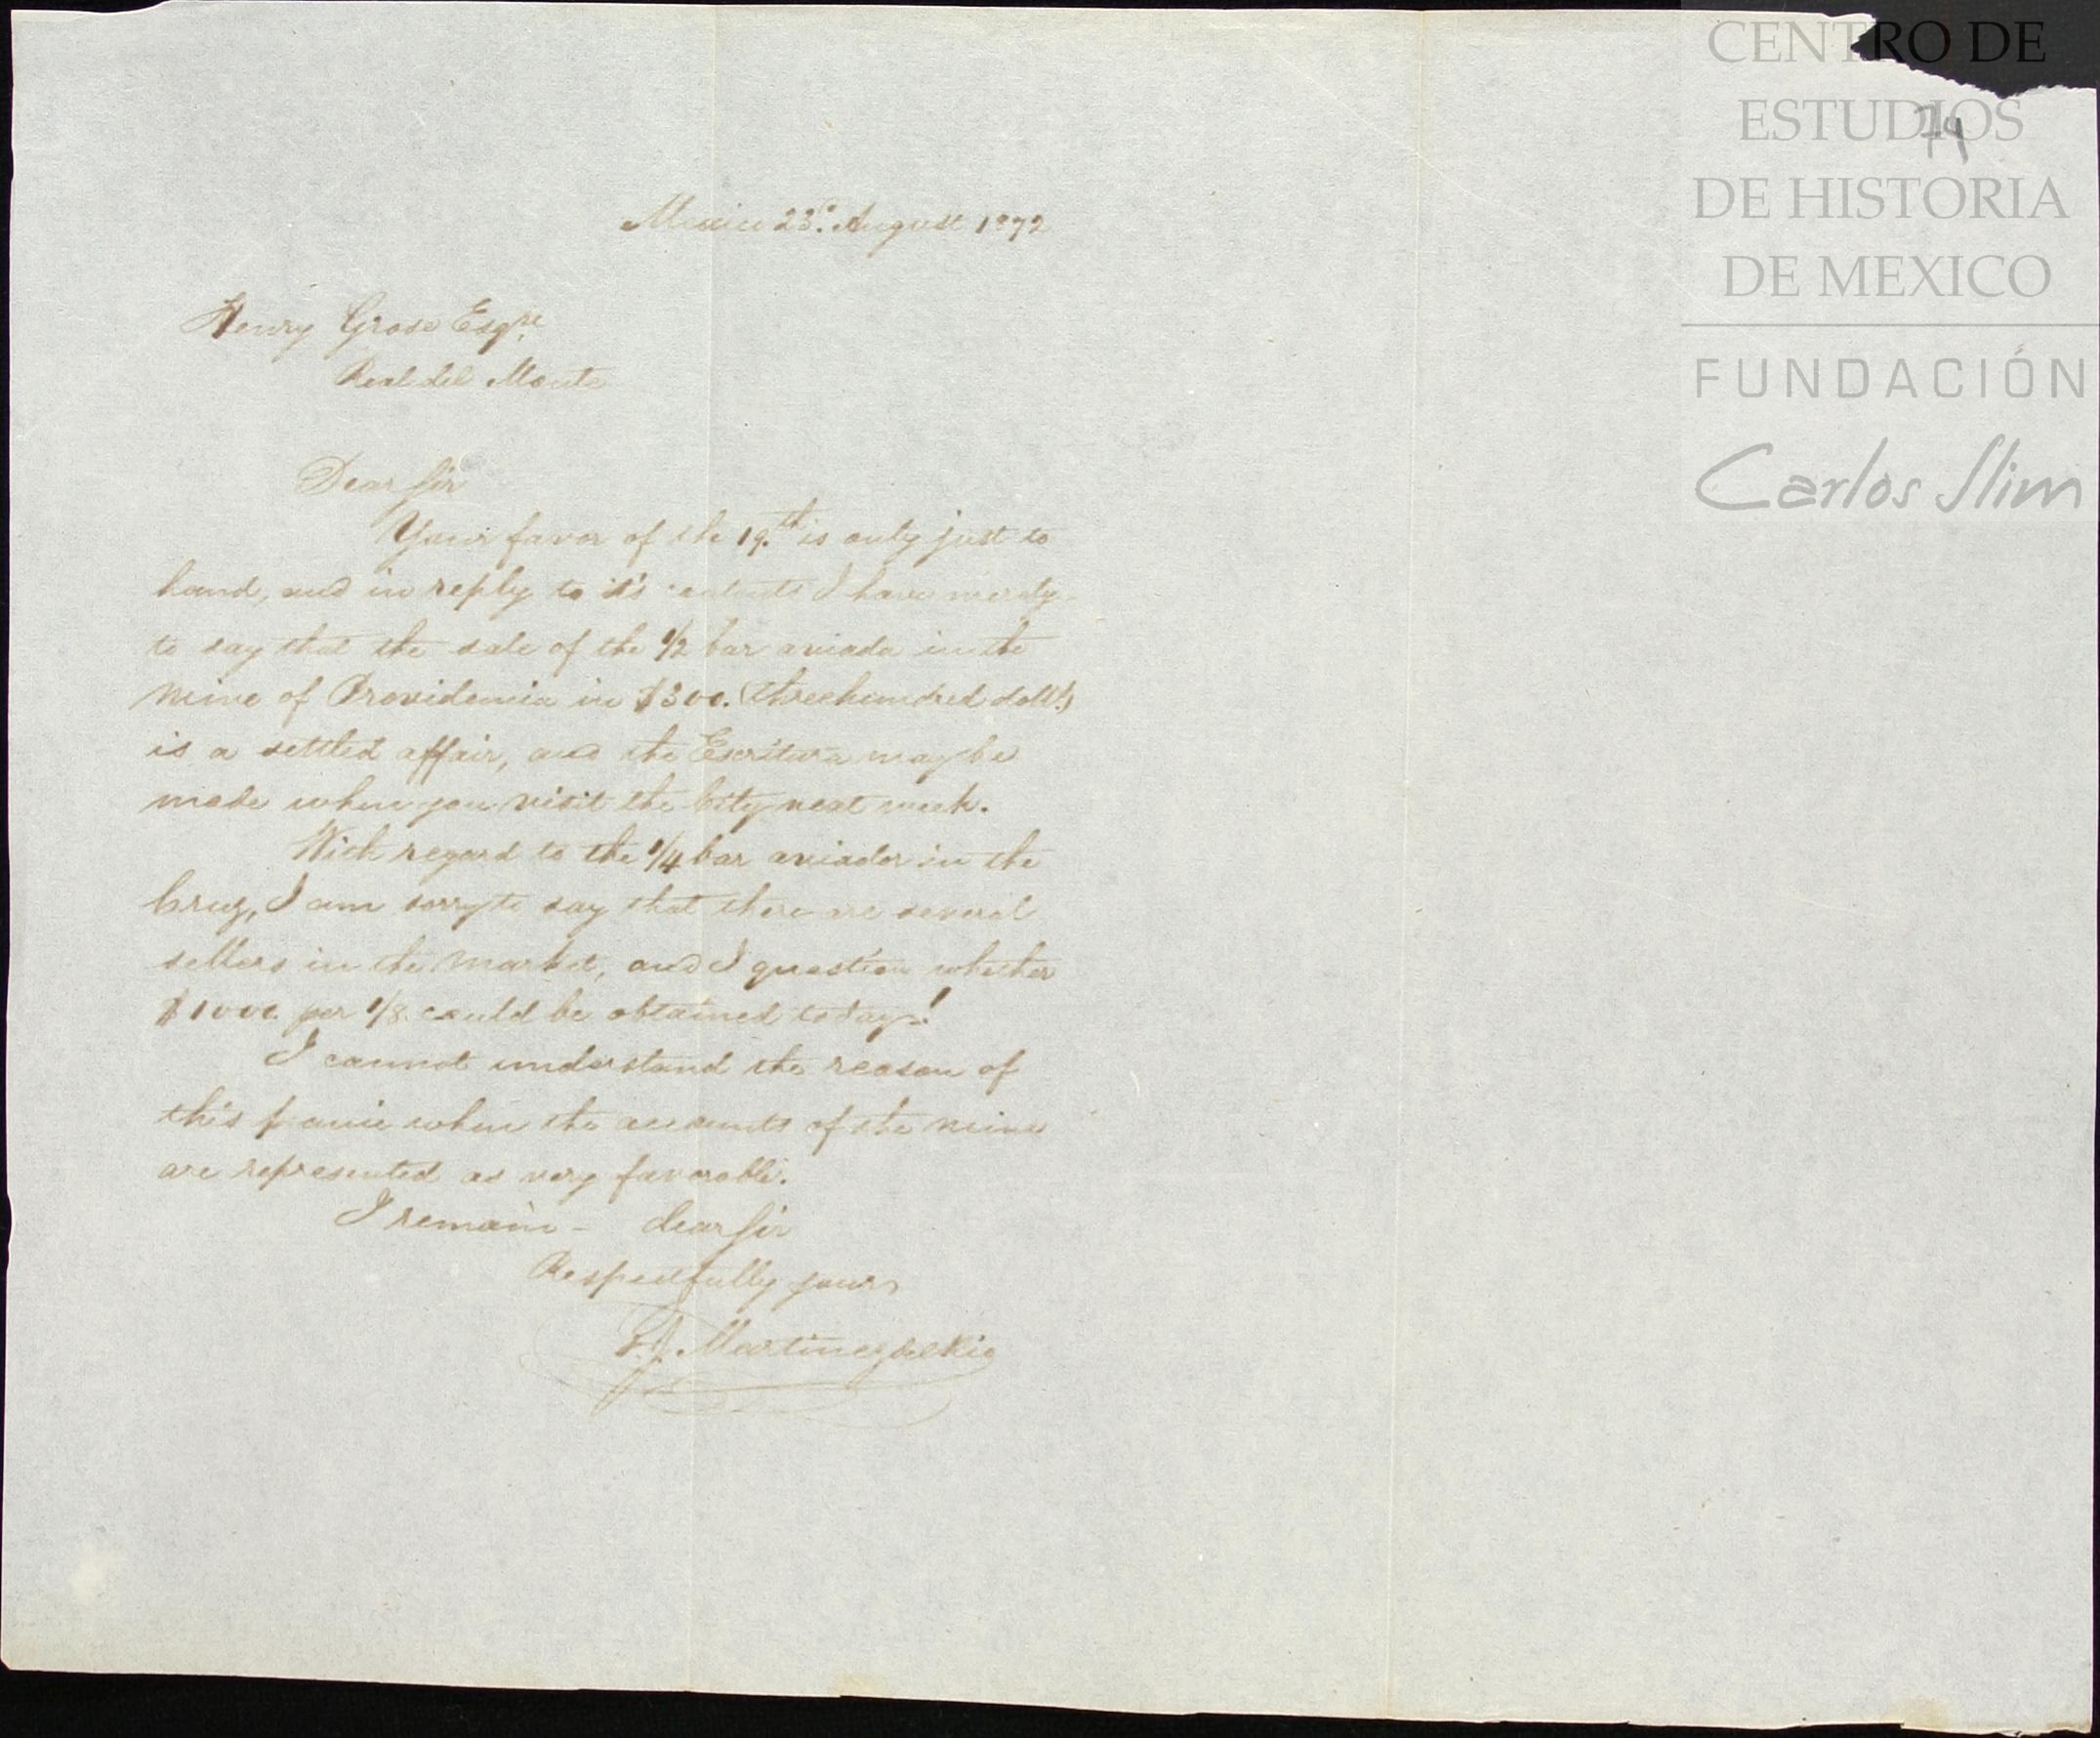 CENTRO DE
ESTUDIOS
DE HISTORIA
DE MEXICO
FUNDACIÓN
Carlos Slim
74
Mexico 23.d August 1872
Henry Grose Esqre
Real del Monte
Dear Sir
Your favor of the 19.th is only just to
hand, and in reply to it's contents I have merely
to say that the sale of the 1/2 bar aviada in the
mine of Providencia in $300. (three hundred dolls.)
is a settled affair, and the Escritura may be
made when you visit the City next week.
With regard to the 1/4 bar aviador in the
Cruz, I am sorry to say that there are several
sellers in the market, and I question whether
$1000. per 1/8. could be obtained to day!
I cannot understand the reason of
this panic when the accounts of the mine
are represented as very favorable.
I remain - dear Sir
Respectfully yours
Martinez del Rio